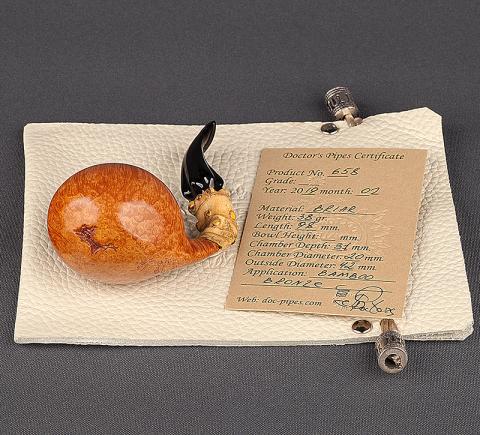 Doctor's Pipes Certificate
Product No. 658
Grade:
Year: 2019 month: 02
Material: BRIAR
Weight: 38 gr.
Length: 98 mm.
Bowl Height: mm.
Chamber Depth: 31 mm.
Chamber Diameter: 20 mm.
Outside Diameter: 42 mm.
Application: BAMBOO
BRONZE
Web: doc-pipes.com